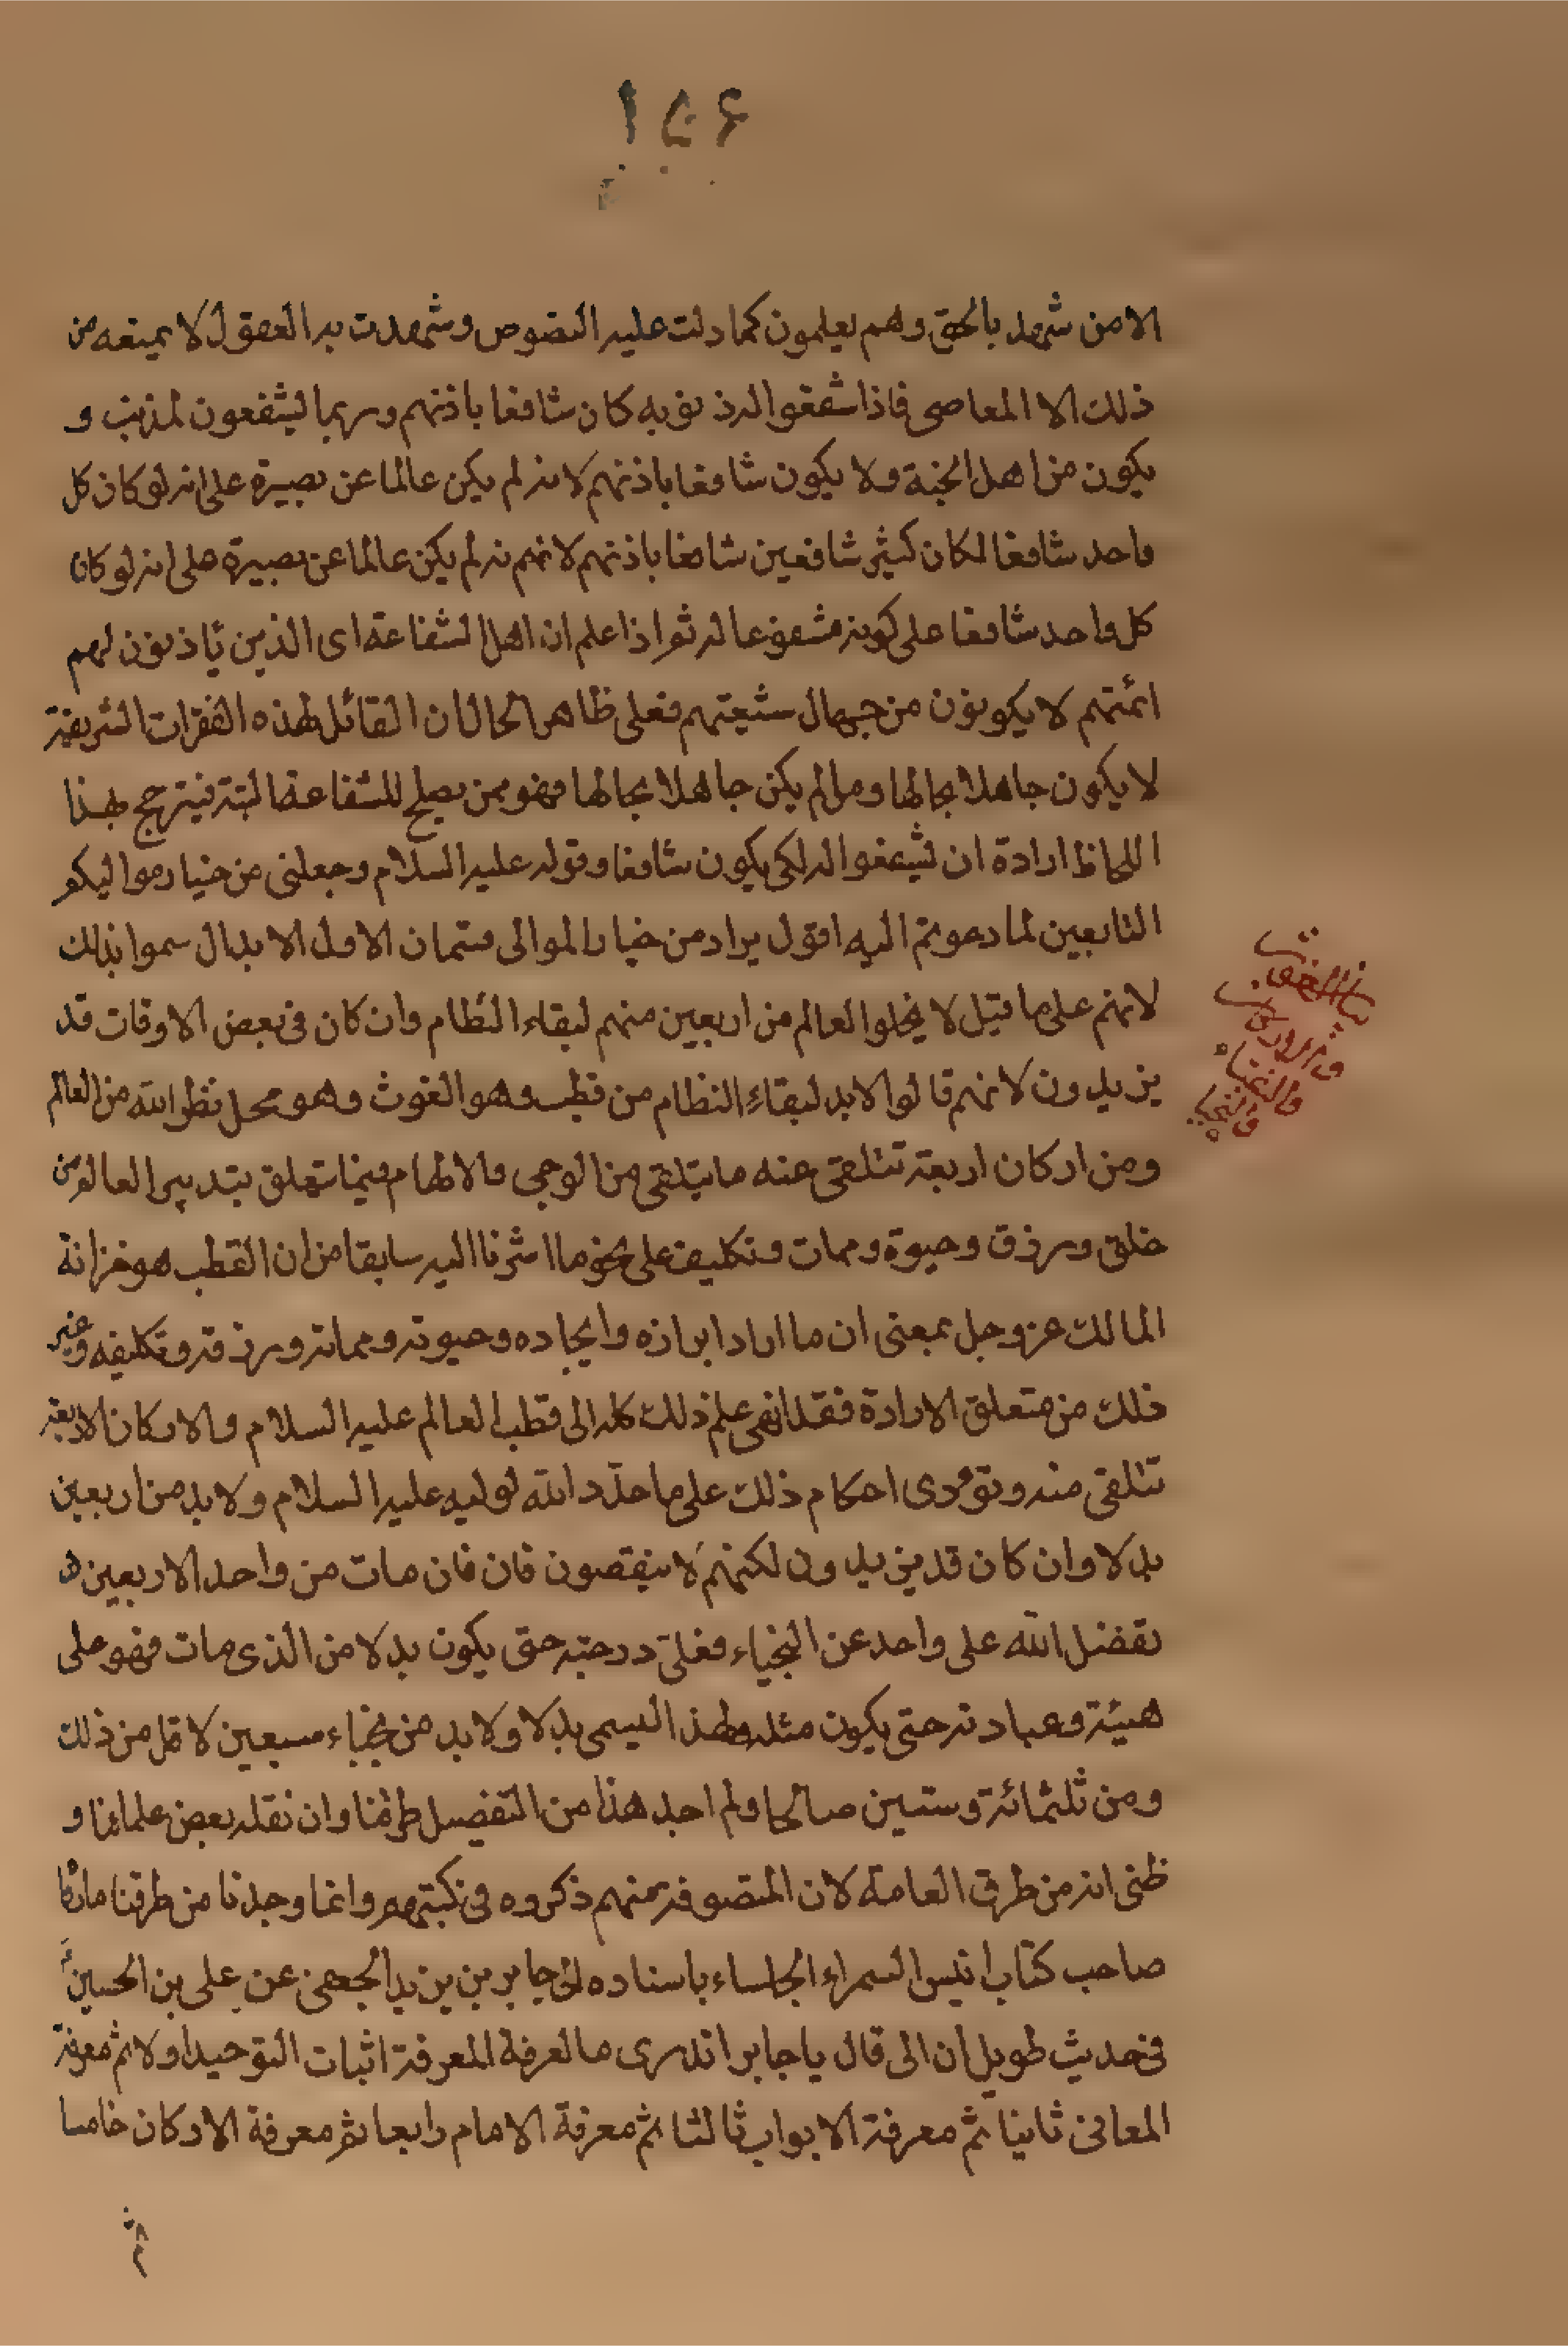 ١٥٤
الا من شهد بالحق وهم يعلمون كما دلت عليه النصوص وشهدت به العقول لا يمنعه من
ذلك الا المعاصى فاذا شفعوا له ذنوبه كان شافعا باذنهم وربما ليشفعون لمذنب و
يكون من اهل الجنة ولا يكون شافعا باذنهم لانه لم يكن عالما عن بصيرة على انه لو كان كل
واحد شافعا لكان كثير شافعين شافعا باذنهم لانهم نه لم يكن عالما عن بصيرة على انه لو كان
كل واحد شافعا على كونه مشفوعا له ثم اذا علم ان اهل الشفاعة اى الذين ياذنون لهم
ائمتهم لا يكونون من جهال شيعتهم فعلى ظاهر الحال ان القائل لهذه الفقرات الشريفة
لا يكون جاهلا بحالها ومن لم يكن جاهلا بحالها فهو ممن يصلح للشفاعة البتة فيترجح بهذا
اللحاظ ارادة ان يشفعوا له لكى يكون شافعا وقوله عليه السلام وجعلنى من خيار مواليكم
التابعين لما دعوتم اليه اقول يراد من خيار الموالى قسمان الاول الابدال سموا بذلك
لانهم على ما قيل لا يخلوا العالم من اربعين منهم لبقاء النظام وان كان فى بعض الاوقات قد
يزيدون لانهم قالوا لابد لبقاء النظام من قطب وهو الغوث وهو محل نظر الله من العالم
ومن اركان اربعة تتلقى عنه ما يتلقى من الوحى والالهام فيما يتعلق بتدبير العالم من
خلق ورزق وحيوة وممات وتكليف على نحو ما اشرنا اليه سابقا من ان القطب هو خزانة
المالك عز وجل بمعنى ان ما اراد ابرازه وايجاده وحيوته ومماته ورزقه وتكليفه وغير
ذلك من متعلق الارادة فقد انهى علم ذلك كله الى قطب العالم عليه السلام والاركان الاربعة
تتلقى منه وتؤدى احكام ذلك على ما حدد الله لوليه عليه السلام ولابد من اربعين
بدلا وان كان قد يزيدون لكنهم لا ينقصون فان فان مات من واحد الاربعين
تفضل الله على واحد عن النجباء فعلى درجته حتى يكون بدلا من الذى مات فهو على
هيئة وعبادته حتى يكون مثله ولهذا اليسمى بدلا ولابد من نجباء سبعين لا قل من ذلك
ومن ثلثمائة وستين صالحا ولم اجد هذا من التفصيل طرقنا وان نقله بعض علمائنا و
ظنى انه من طرق العامة لان المتصوفة منهم ذكروه فى كتبهم وانما وجدنا من طرقنا ما رواه
صاحب كتاب انيس السمراء الجلساء باسناده الى جابر بن يزيد الجعفى عن على بن الحسين ع
فى حديث طويل ان الى قال يا جابر اتدرى ما المعرفة المعرفة اثبات التوحيد اولا ثم معرفة
المعانى ثانيا ثم معرفة الابواب ثالثا ثم معرفة الامام رابعا ثم معرفة الاركان خامسا
ثم
بيان الغوث
والاركان
والنقباء
والنجباء